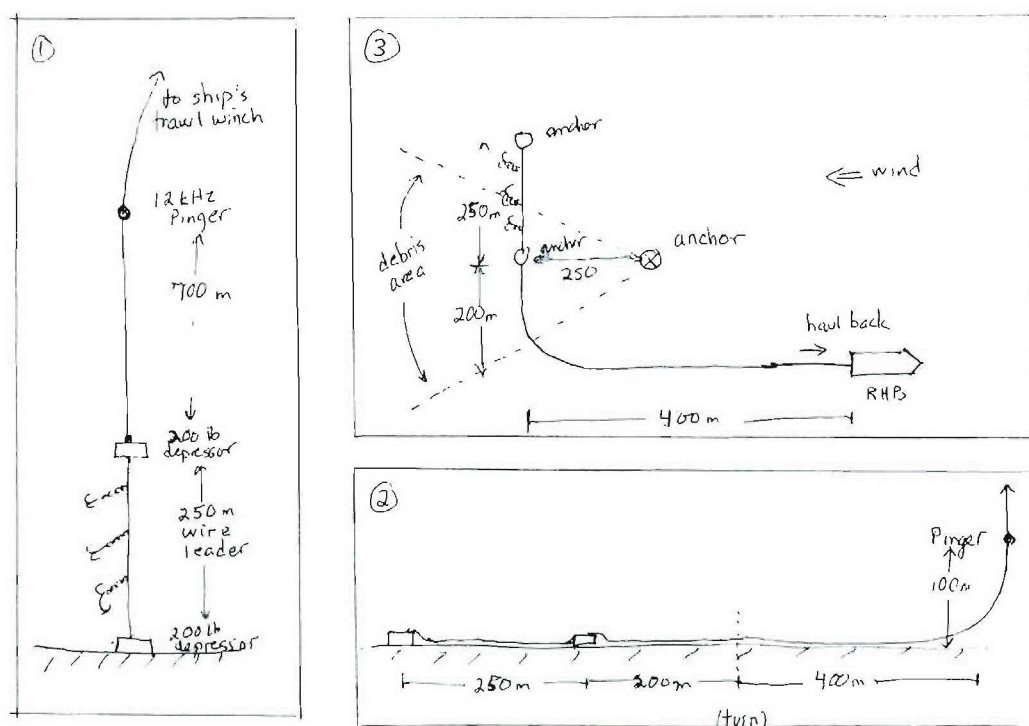 ①
to ship's
trawl winch
12 kHz
Pinger
700 m
200 lb
depressor
250 m
wire
leader
200 lb
depressor
③
anchor
wind
250m
anchor
anchor
250
debris
area
200m
haul back
RHPs
400m
②
Pinger
100m
250m
200m
400m
(turn)